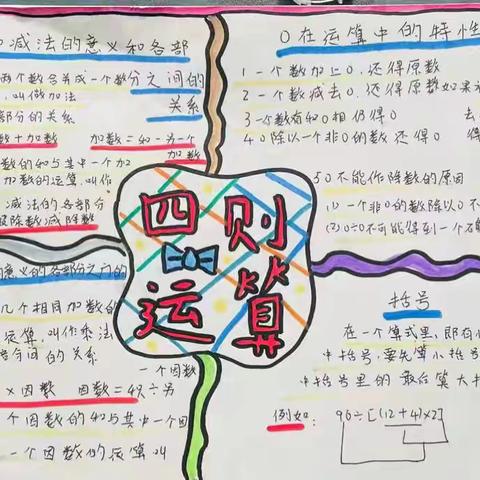 减法的意义和各部
两个数合并成一个数分之间的
叫做加法 关系
部分的关系
数+加数 加数=和-另一个
加数
数的和与其中一个加
加数的运算,叫作
减法的各部分
减数 减除数
意义的各部分之间的
几个相同加数的
运算,叫作乘法
分间的关系
一个因数
×因数 因数=积÷另
个因数的积与其中一个因
一个因数的运算叫
四则
运算
0在运算中的特性
1一个数加上0,还得原数
2.一个数减去0,还得原数如果
3一个数和0相仍得0
40除以一个非0的数还得0
50不能作除数的原因
(1)一个非0的数除以0不
(2)0÷0不可能得到一个
括号
在一个算式里,即有
中括号,要先算小括号
中括号里的最后算大
例如: 96÷[(12+4)×2]